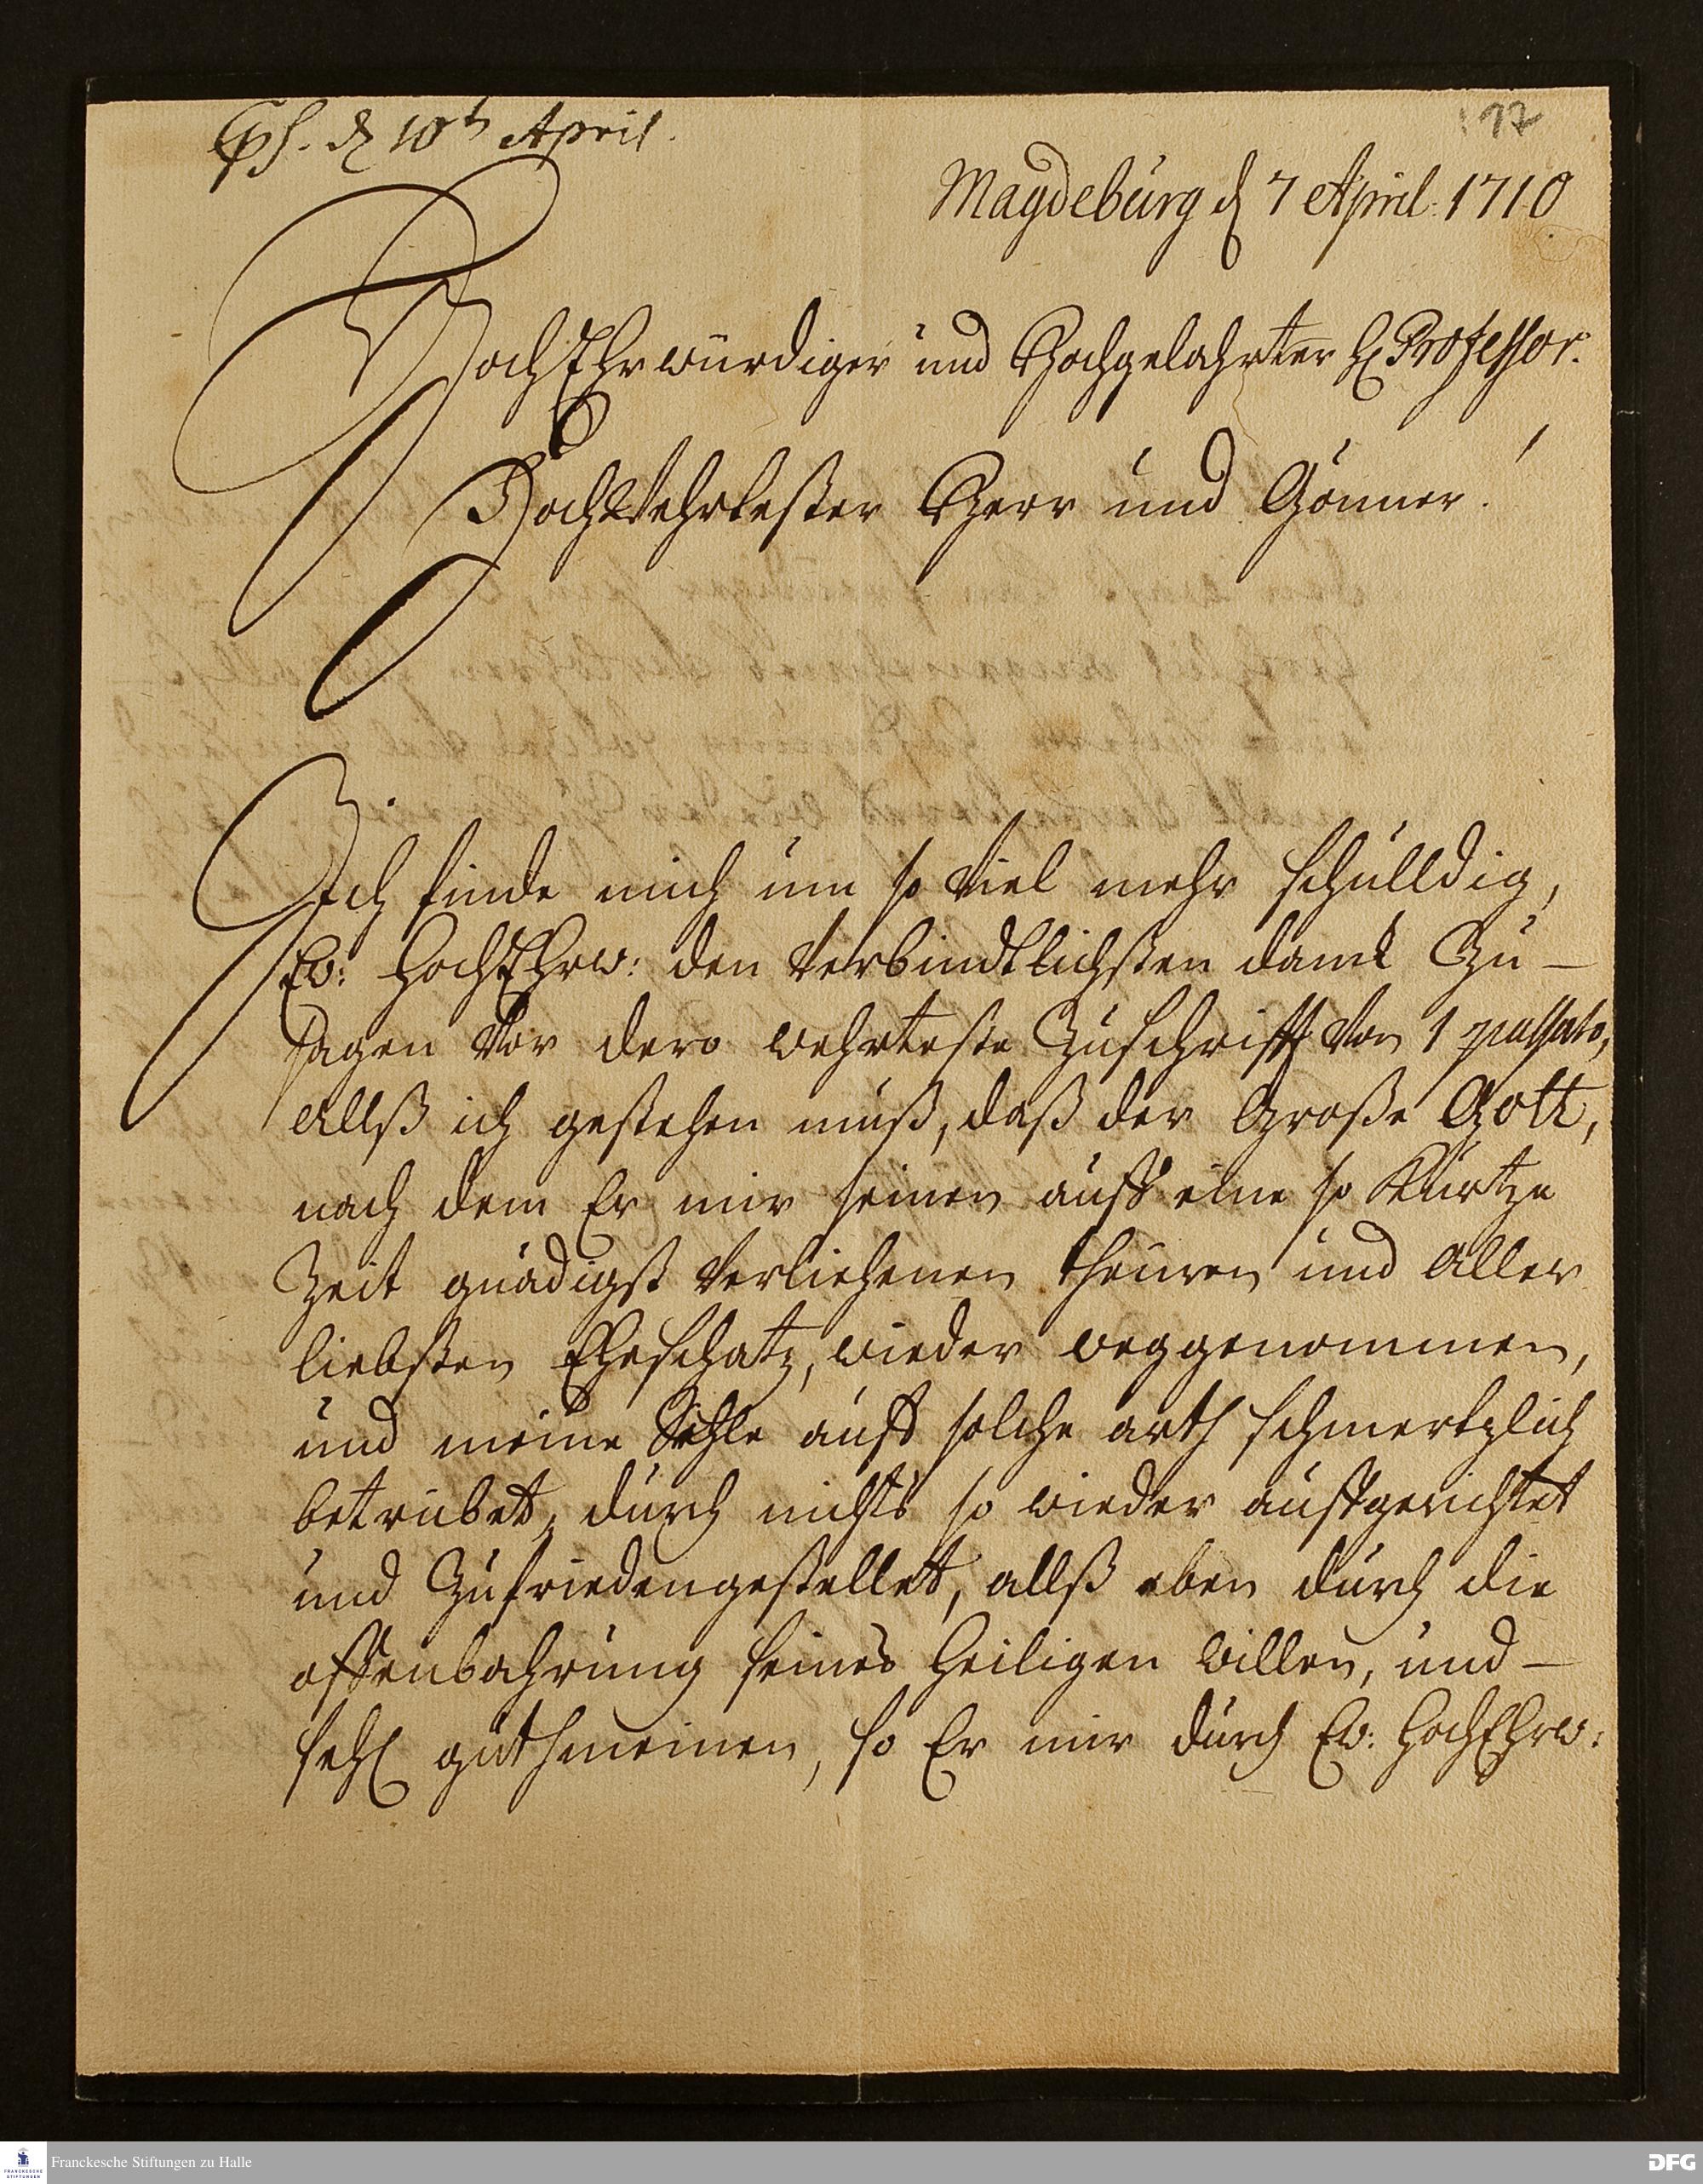 d 10t April.
17
Magdeburg d 7 April: 1710
HochEhrwürdiger und Hochgelahrter H Professor.
HochWehrtester Herr und Gönner!
Ich finde mich um so viel mehr schulldig,
Ew: HochEhrw: den verbindtlichsten danck Zu-
sagen vor dero wehrteste Zuschrifft von 1 passato,
allß ich gestehen muß, daß der Große Gott,
nach dem Er mir seinen auff eine so Kurtze
Zeit gnädigst verliehenen theuren und aller
liebsten Eheschatz, wieder weggenommen,
und meine Sehle auff solche arth schmertzlich
betrübet, durch nichts so wieder auffgerichtet
und Zufriedengestellet, allß eben durch die
offenbahrung seines heiligen willen, und-
guthmeinen, so Er mir durch Ew: HochEhrw:
FRANCKESCHE STIFTUNGEN
Franckesche Stiftungen zu Halle
DFG